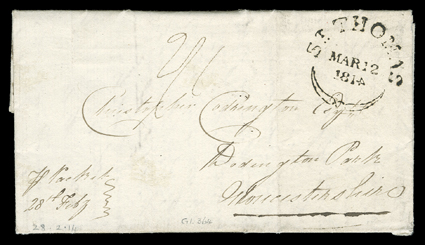 ST THOMAS
MAR 12
1814
2/
Christopher Codrington Esqr
Dodington Park
Gloucestershire
P Packet
28th Feby
28-2-14